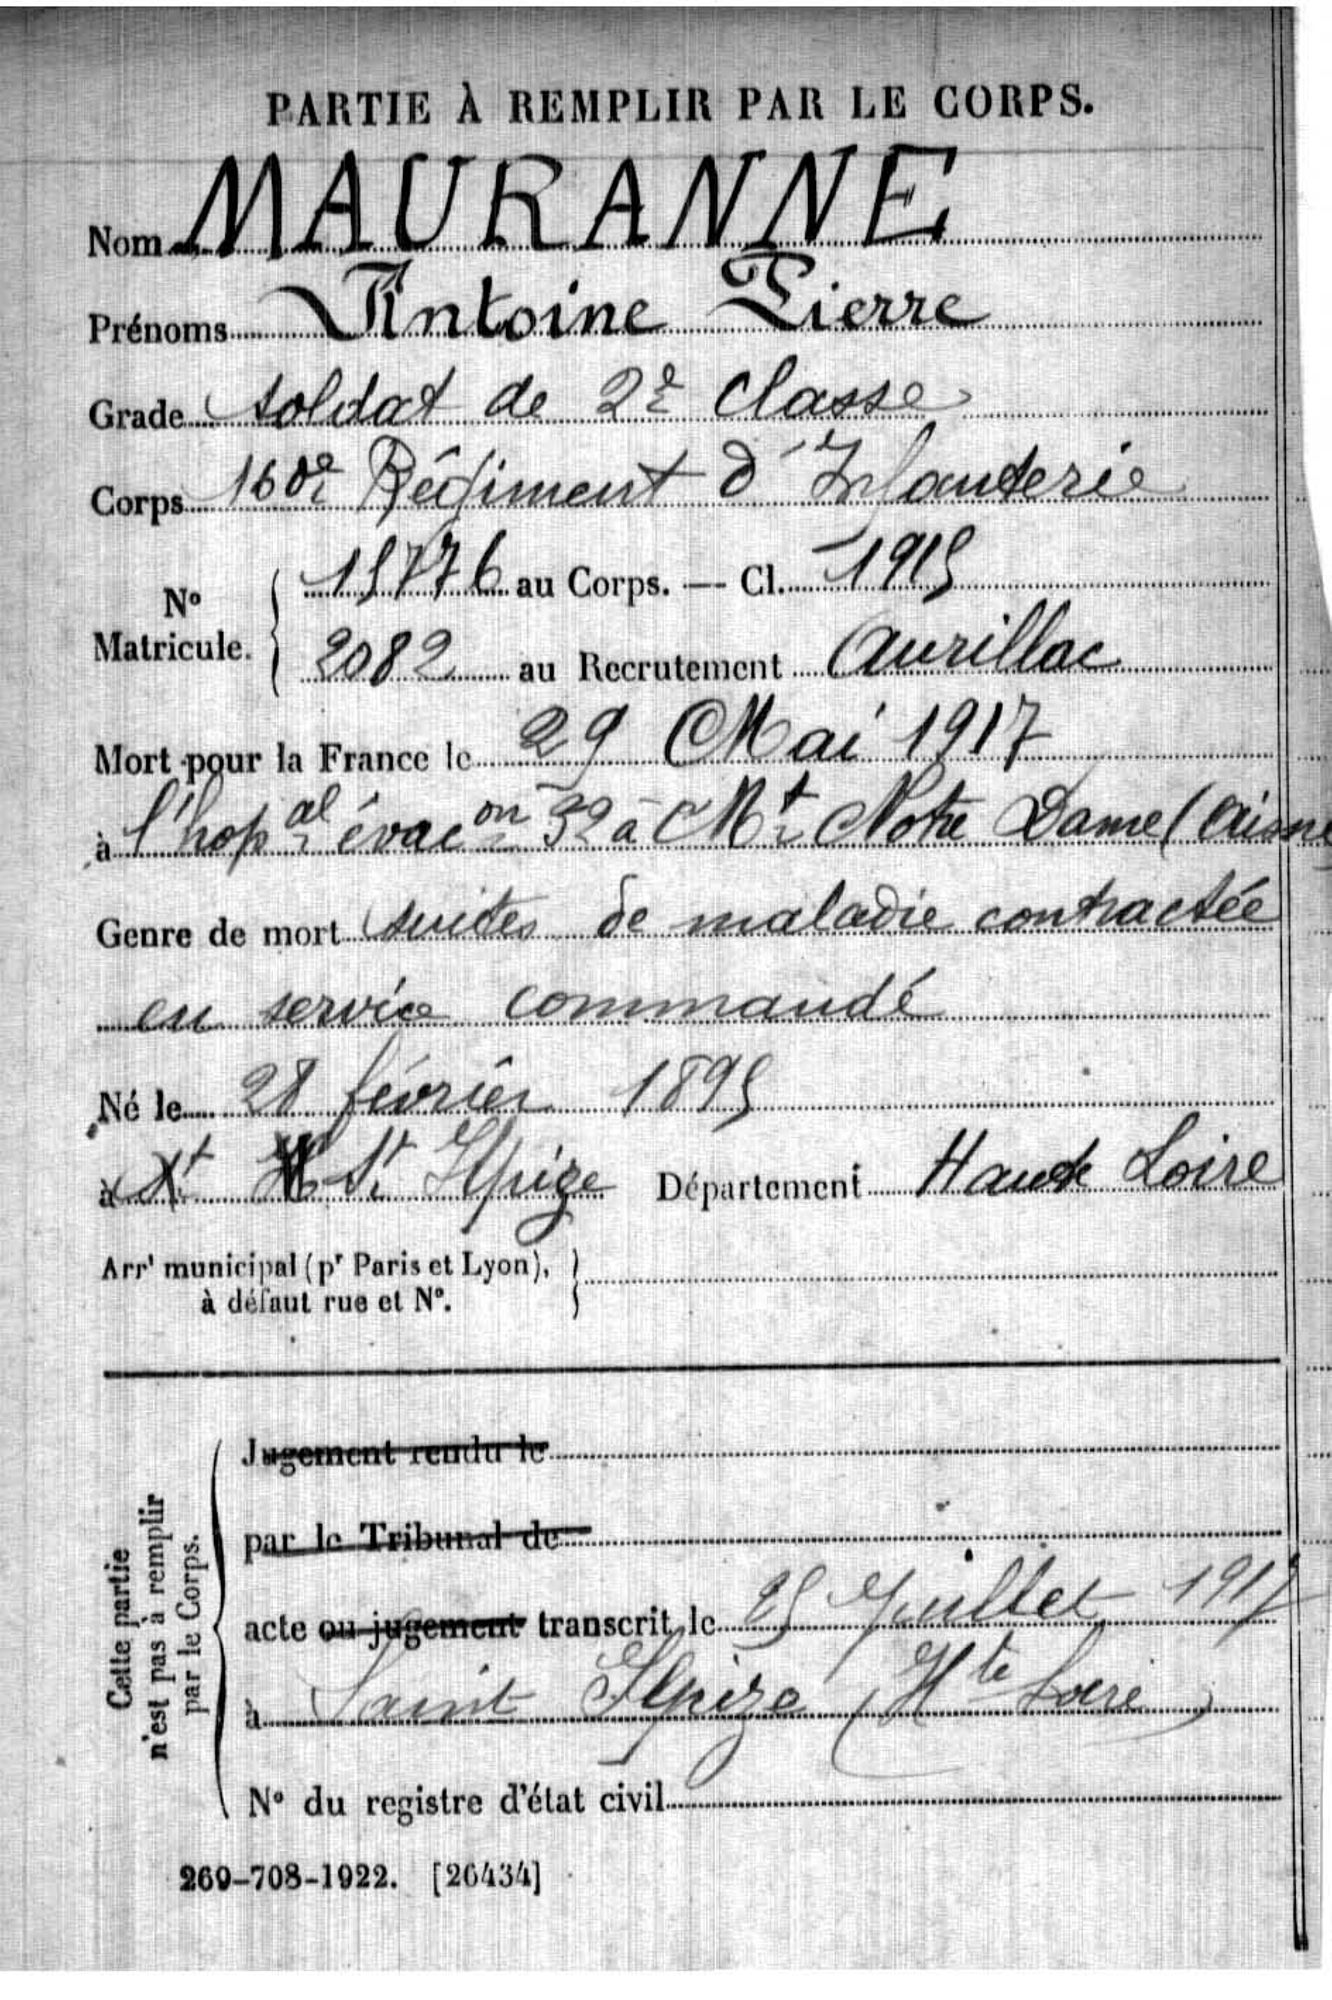 PARTIE À REMPLIR PAR LE CORPS.
Nom MAURANNE
Prénoms Antoine Pierre
Grade soldat de 2e classe
Corps 160e Régiment d'Infanterie
N° Matricule. 15776 au Corps. — Cl. 1915
2082 au Recrutement Aurillac
Mort pour la France le 29 Mai 1917
à l'hopal évacon 32 à Mt Notre Dame (Aisne
Genre de mort suites de maladie contractée
en service commandé
Né le 28 février 1895
à St Ilpize Département Haute Loire
Arrt municipal (pr Paris et Lyon),
à défaut rue et N°.
Cette partie
n'est pas à remplir
par le Corps.
Jugement rendu le
par le Tribunal de
acte ou jugement transcrit le 25 Juillet 1917
à Saint Ilpize (Hte Loire)
N° du registre d'état civil
269-708-1922. [26434]